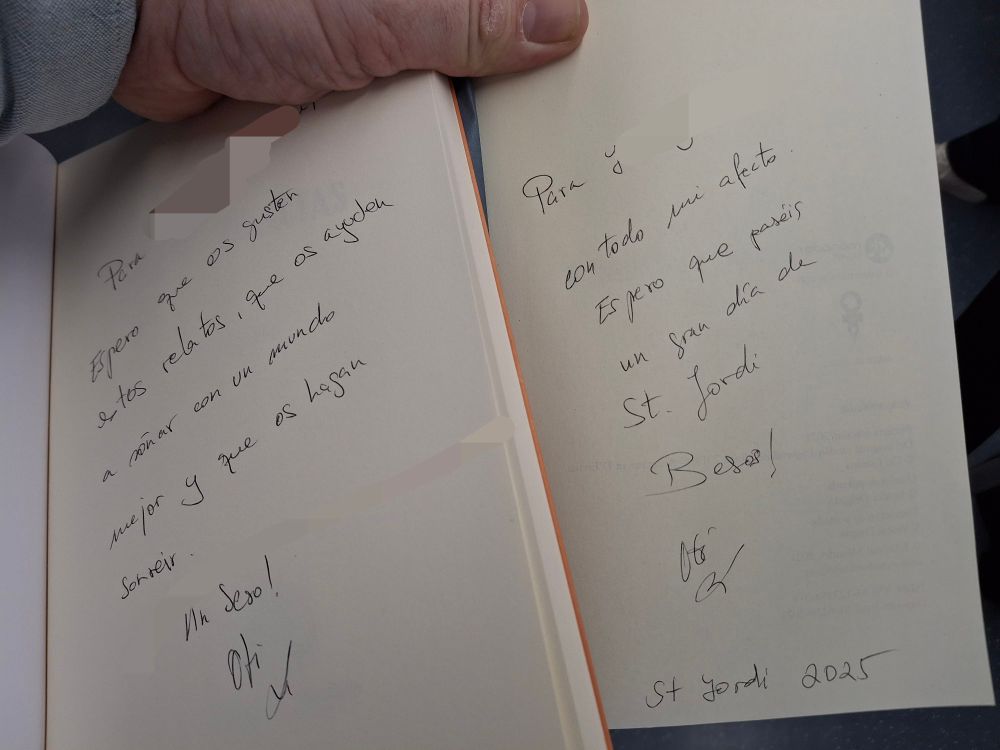 Para
Espero que os gusten
estos relatos, que os ayuden
a soñar con un mundo
mejor y que os hagan
sonreir.
Un beso!
Oti
Para y
con todo mi afecto.
Espero que paséis
un gran día de
St. Jordi
Besos!
Oti
St Jordi 2025